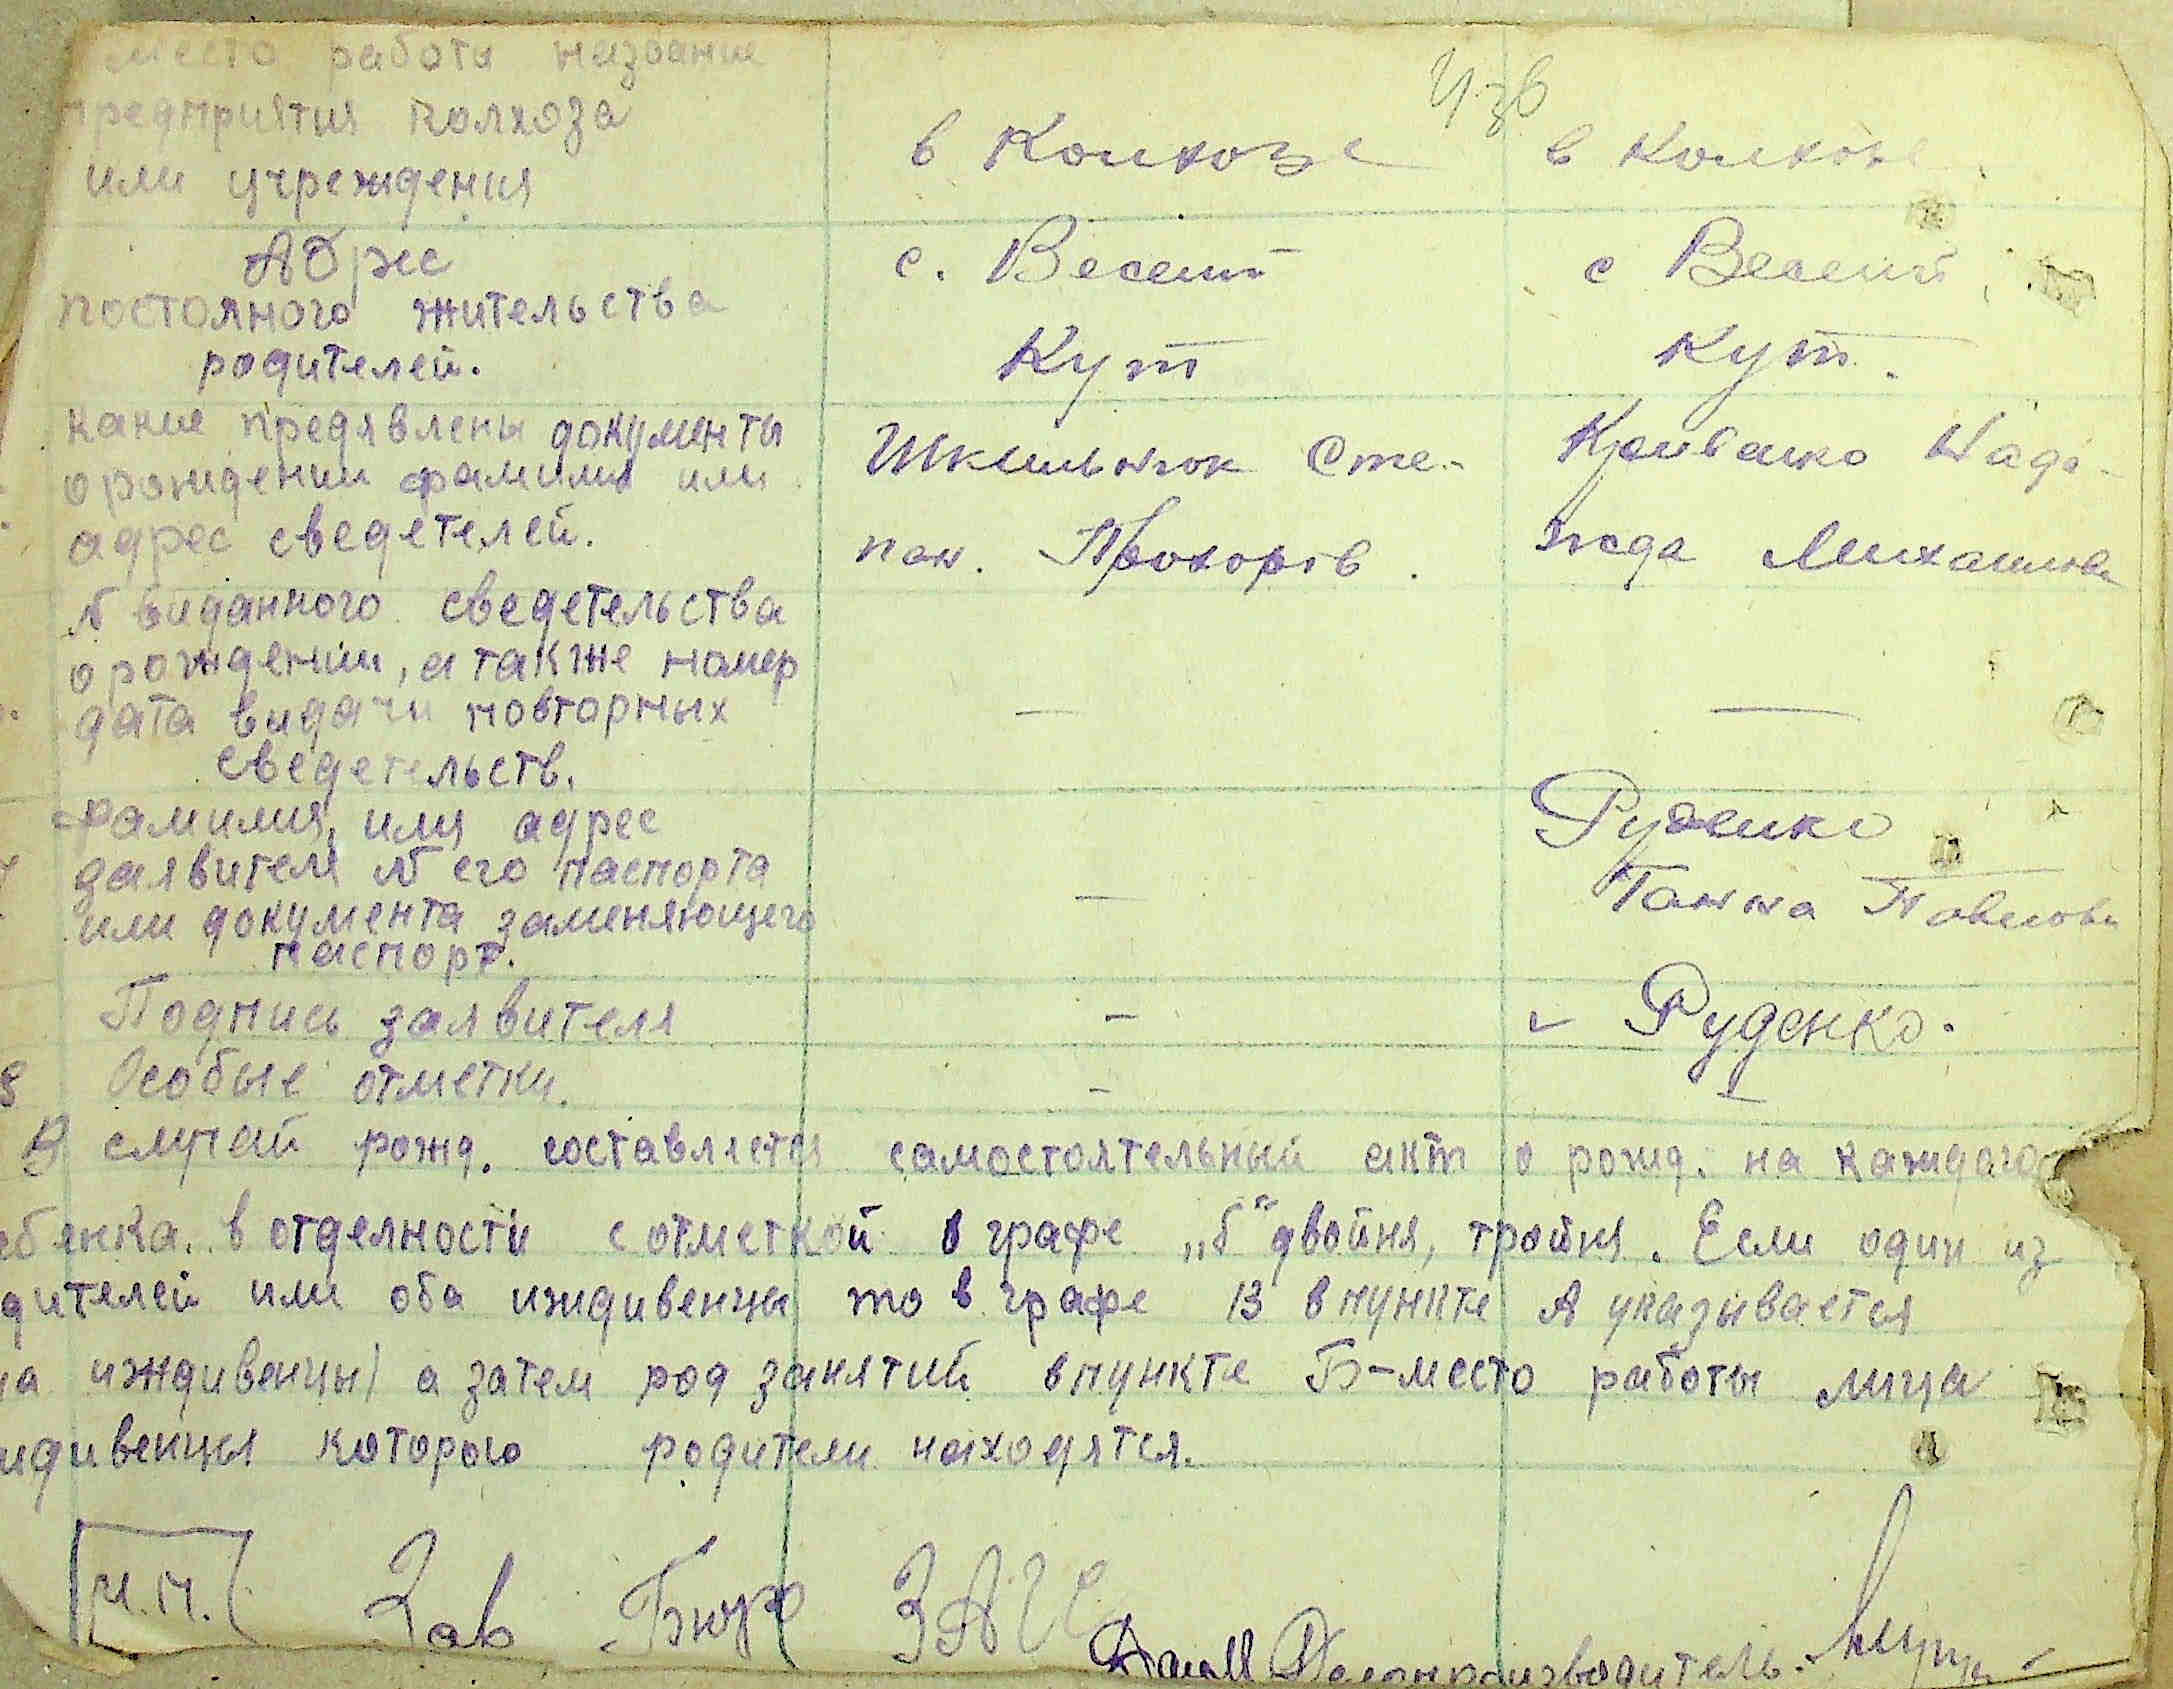 место работи название
предприятия колхоза
или учреждения
в Колхозе
в Колхозе
Адрес
постояного жительства
родителей.
с. Веселий
Кут
с Веселий
Кут.
какие предявлены документы
о рождении фамилия или
адрес сведетелей.
Шкильнюк Сте-
пан. Прохорів.
Криванко Наде-
жда Михайлов
№ виданного сведетельства
о рождении, а также номер
дата видачи повторных
сведетельств.
—
—
фамилия, или адрес
заявителя № его паспорта
или документа заменяющего
паспорт.
—
Руденко
Ганна Павлов
Подпись заявителя
–
Руденко.
8 Особые отметки.
–
В случай рожд. составляется самостоятельный акт о рожд. на каждого
ебенка. в отделности с отметкой в графе „б" двойня, тройня. Если один из
дителей или оба иждивенцы то в графе 13 в пункте А указывается
на иждивенцы) а затем род занятий в пункте Б-место работы лица
идивенця которого родители находятся.
М.П. Зав Бюро ЗАГС
Делопроизводитель.